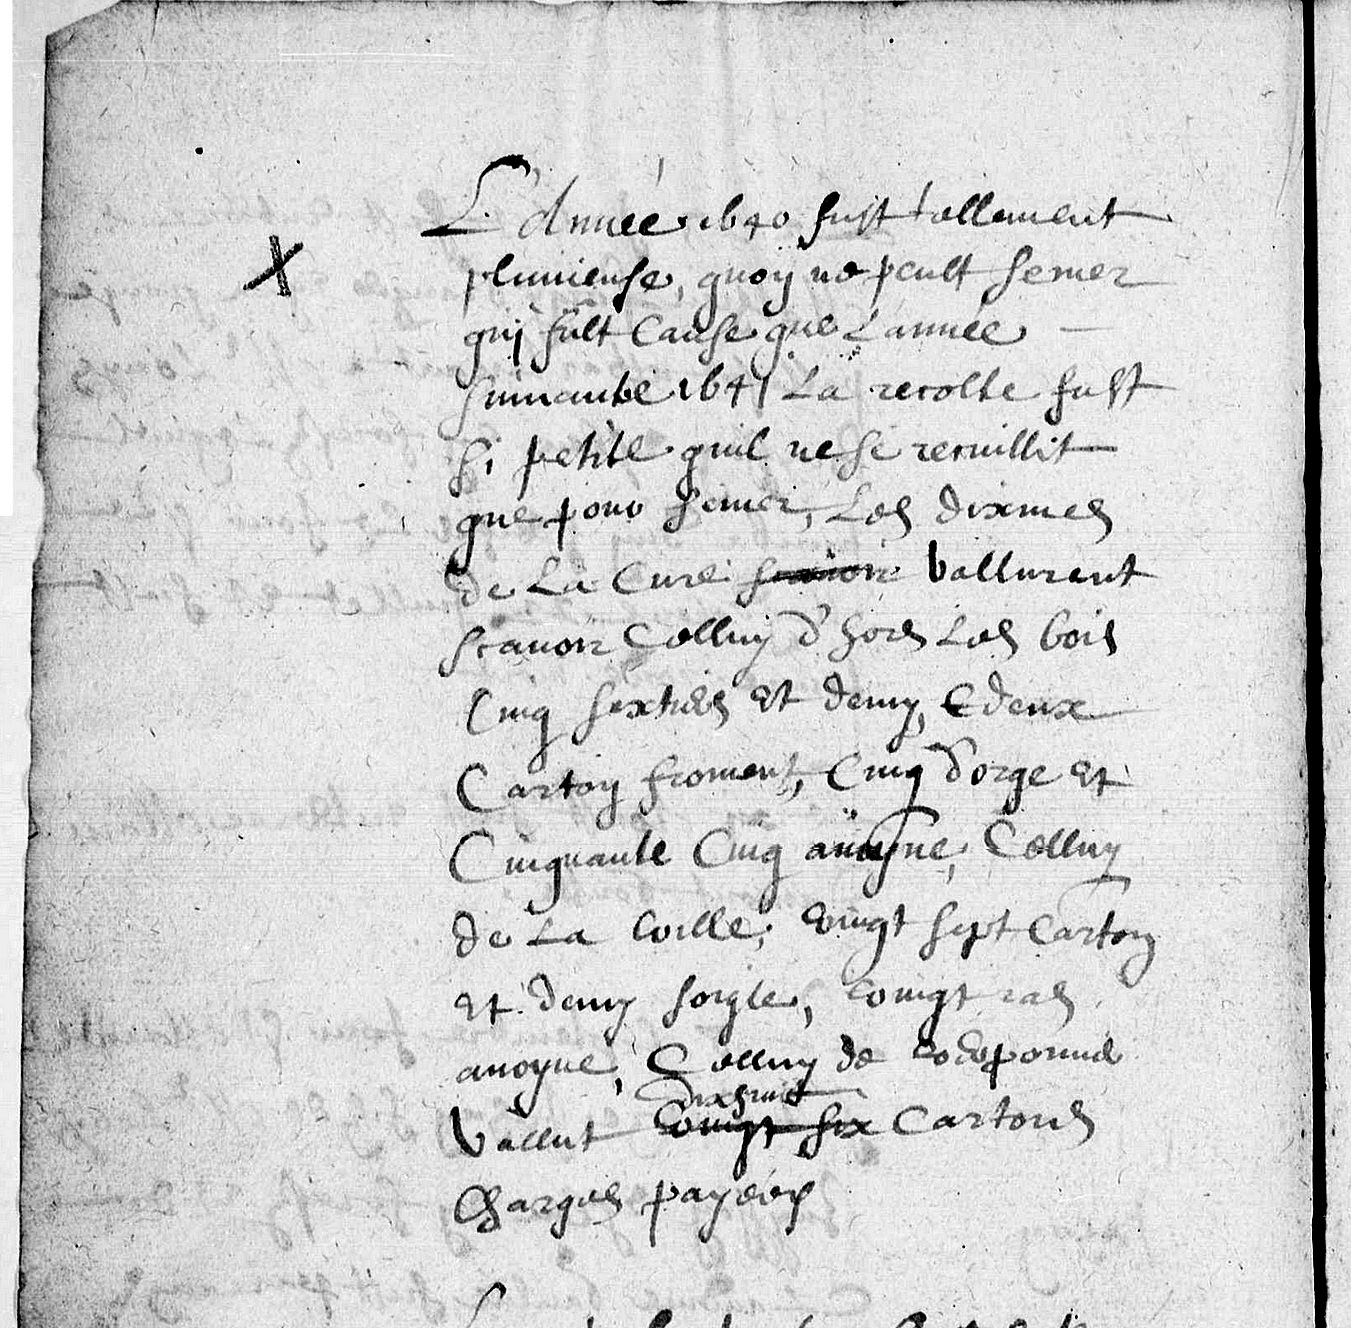 L'Année 1640 fust tellement
pluuieuse, quoy ne peult semer
quj fust Cause que Lannée
suiuante 1641 La recolte fust
si petite quil ne se recuillit
que pour semer, Les dixmes
de La Cure scauoir Vallurent
scauoir Celluy d'hors Les bois
Cinq sextiers Et demy, E deux
Carton froment, Cinq d'orge Et
Cinquante Cinq auoyne, Celluy
de La ville, vingt sept Carton
Et demy soigle, vingt ras
auoyne, Celluy de
dixhuict
Vallut vingt six Cartons
Charges payées